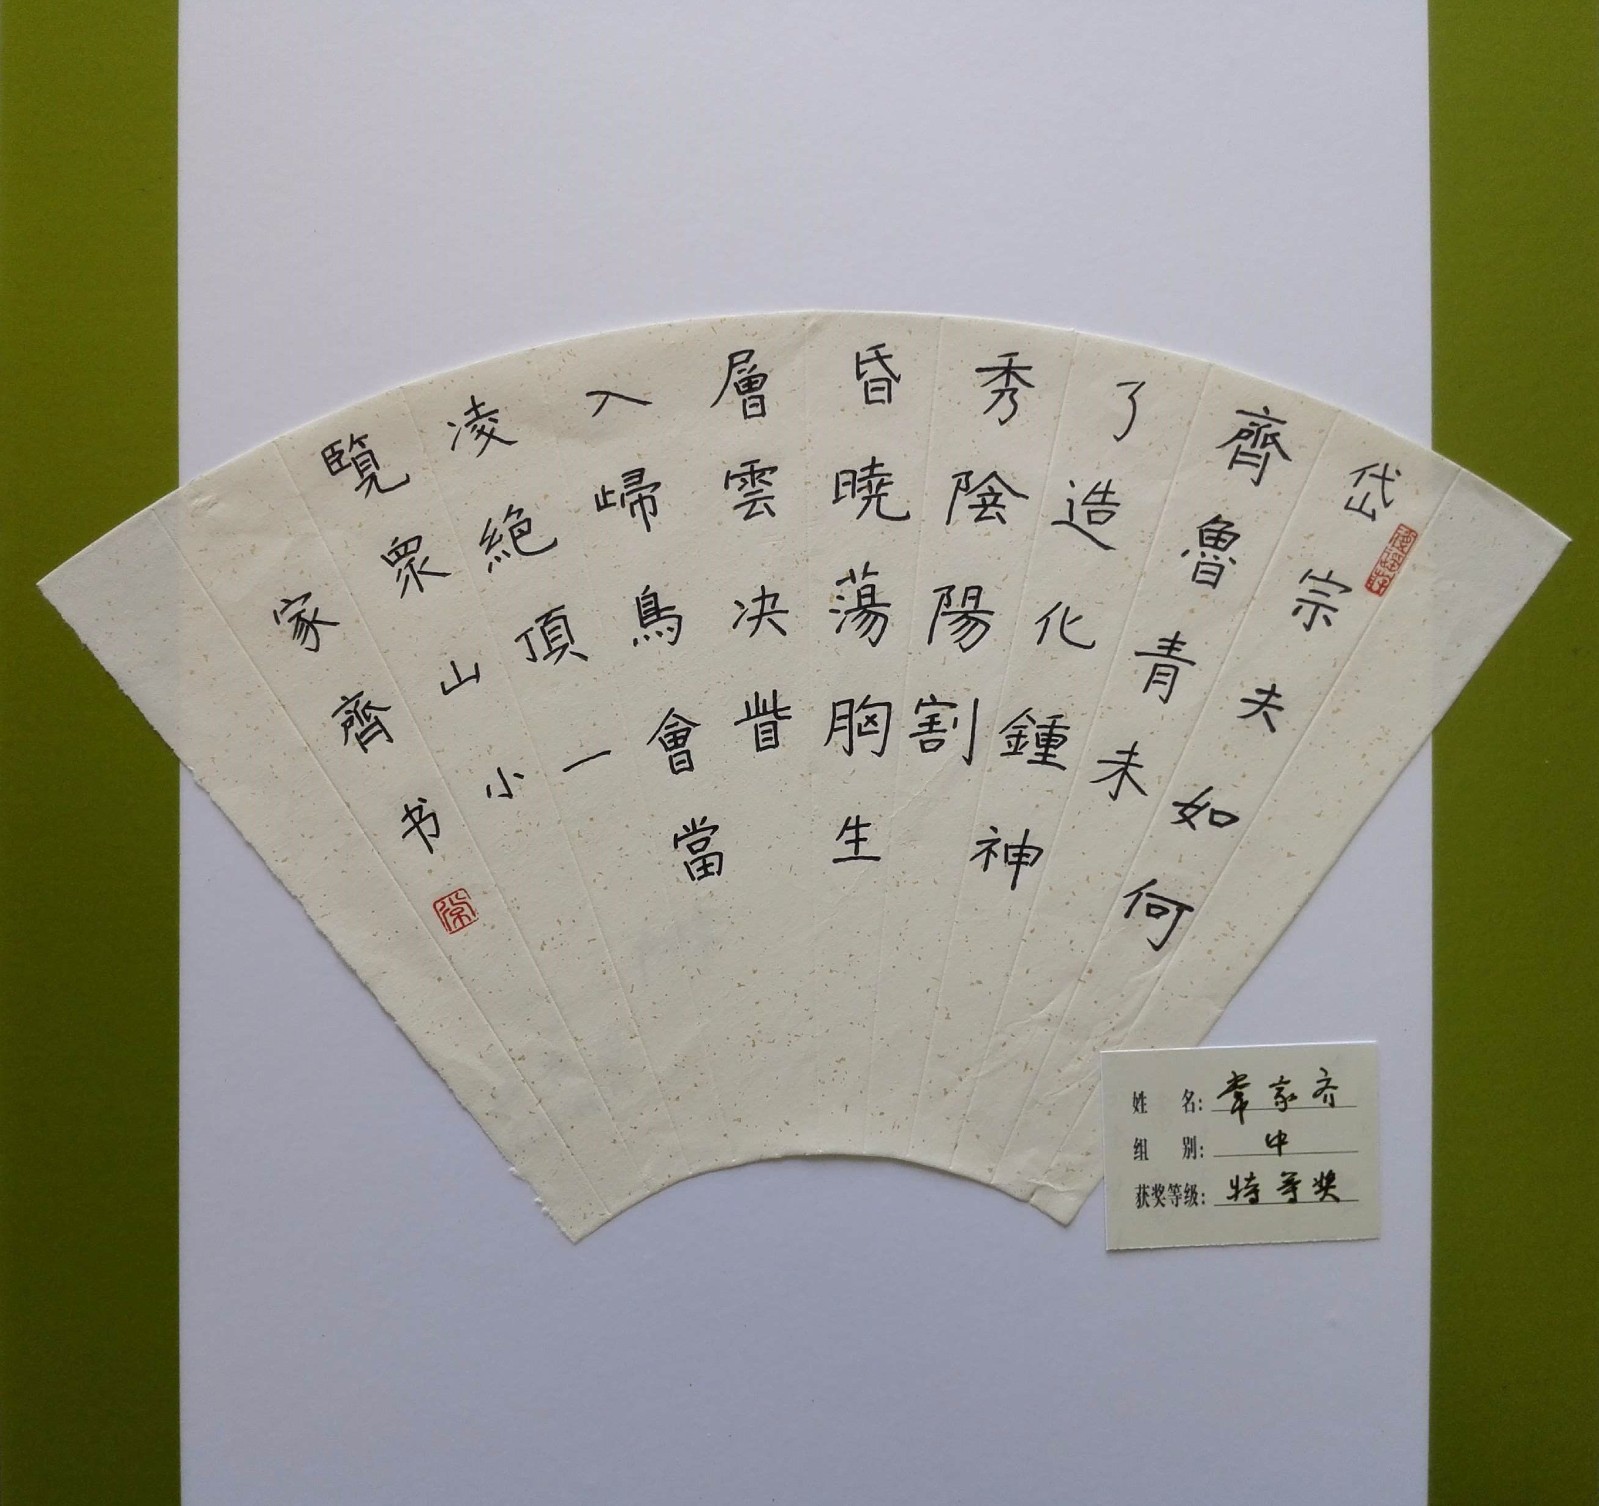 岱宗夫如何
齊魯青未
了造化鍾神
秀陰陽割
昏曉蕩胸生
層雲决眥
入㱕鳥會當
凌絶頂一
覽眾山小
家齊书
姓名：家齐
组别：中
获奖等级：特等奖